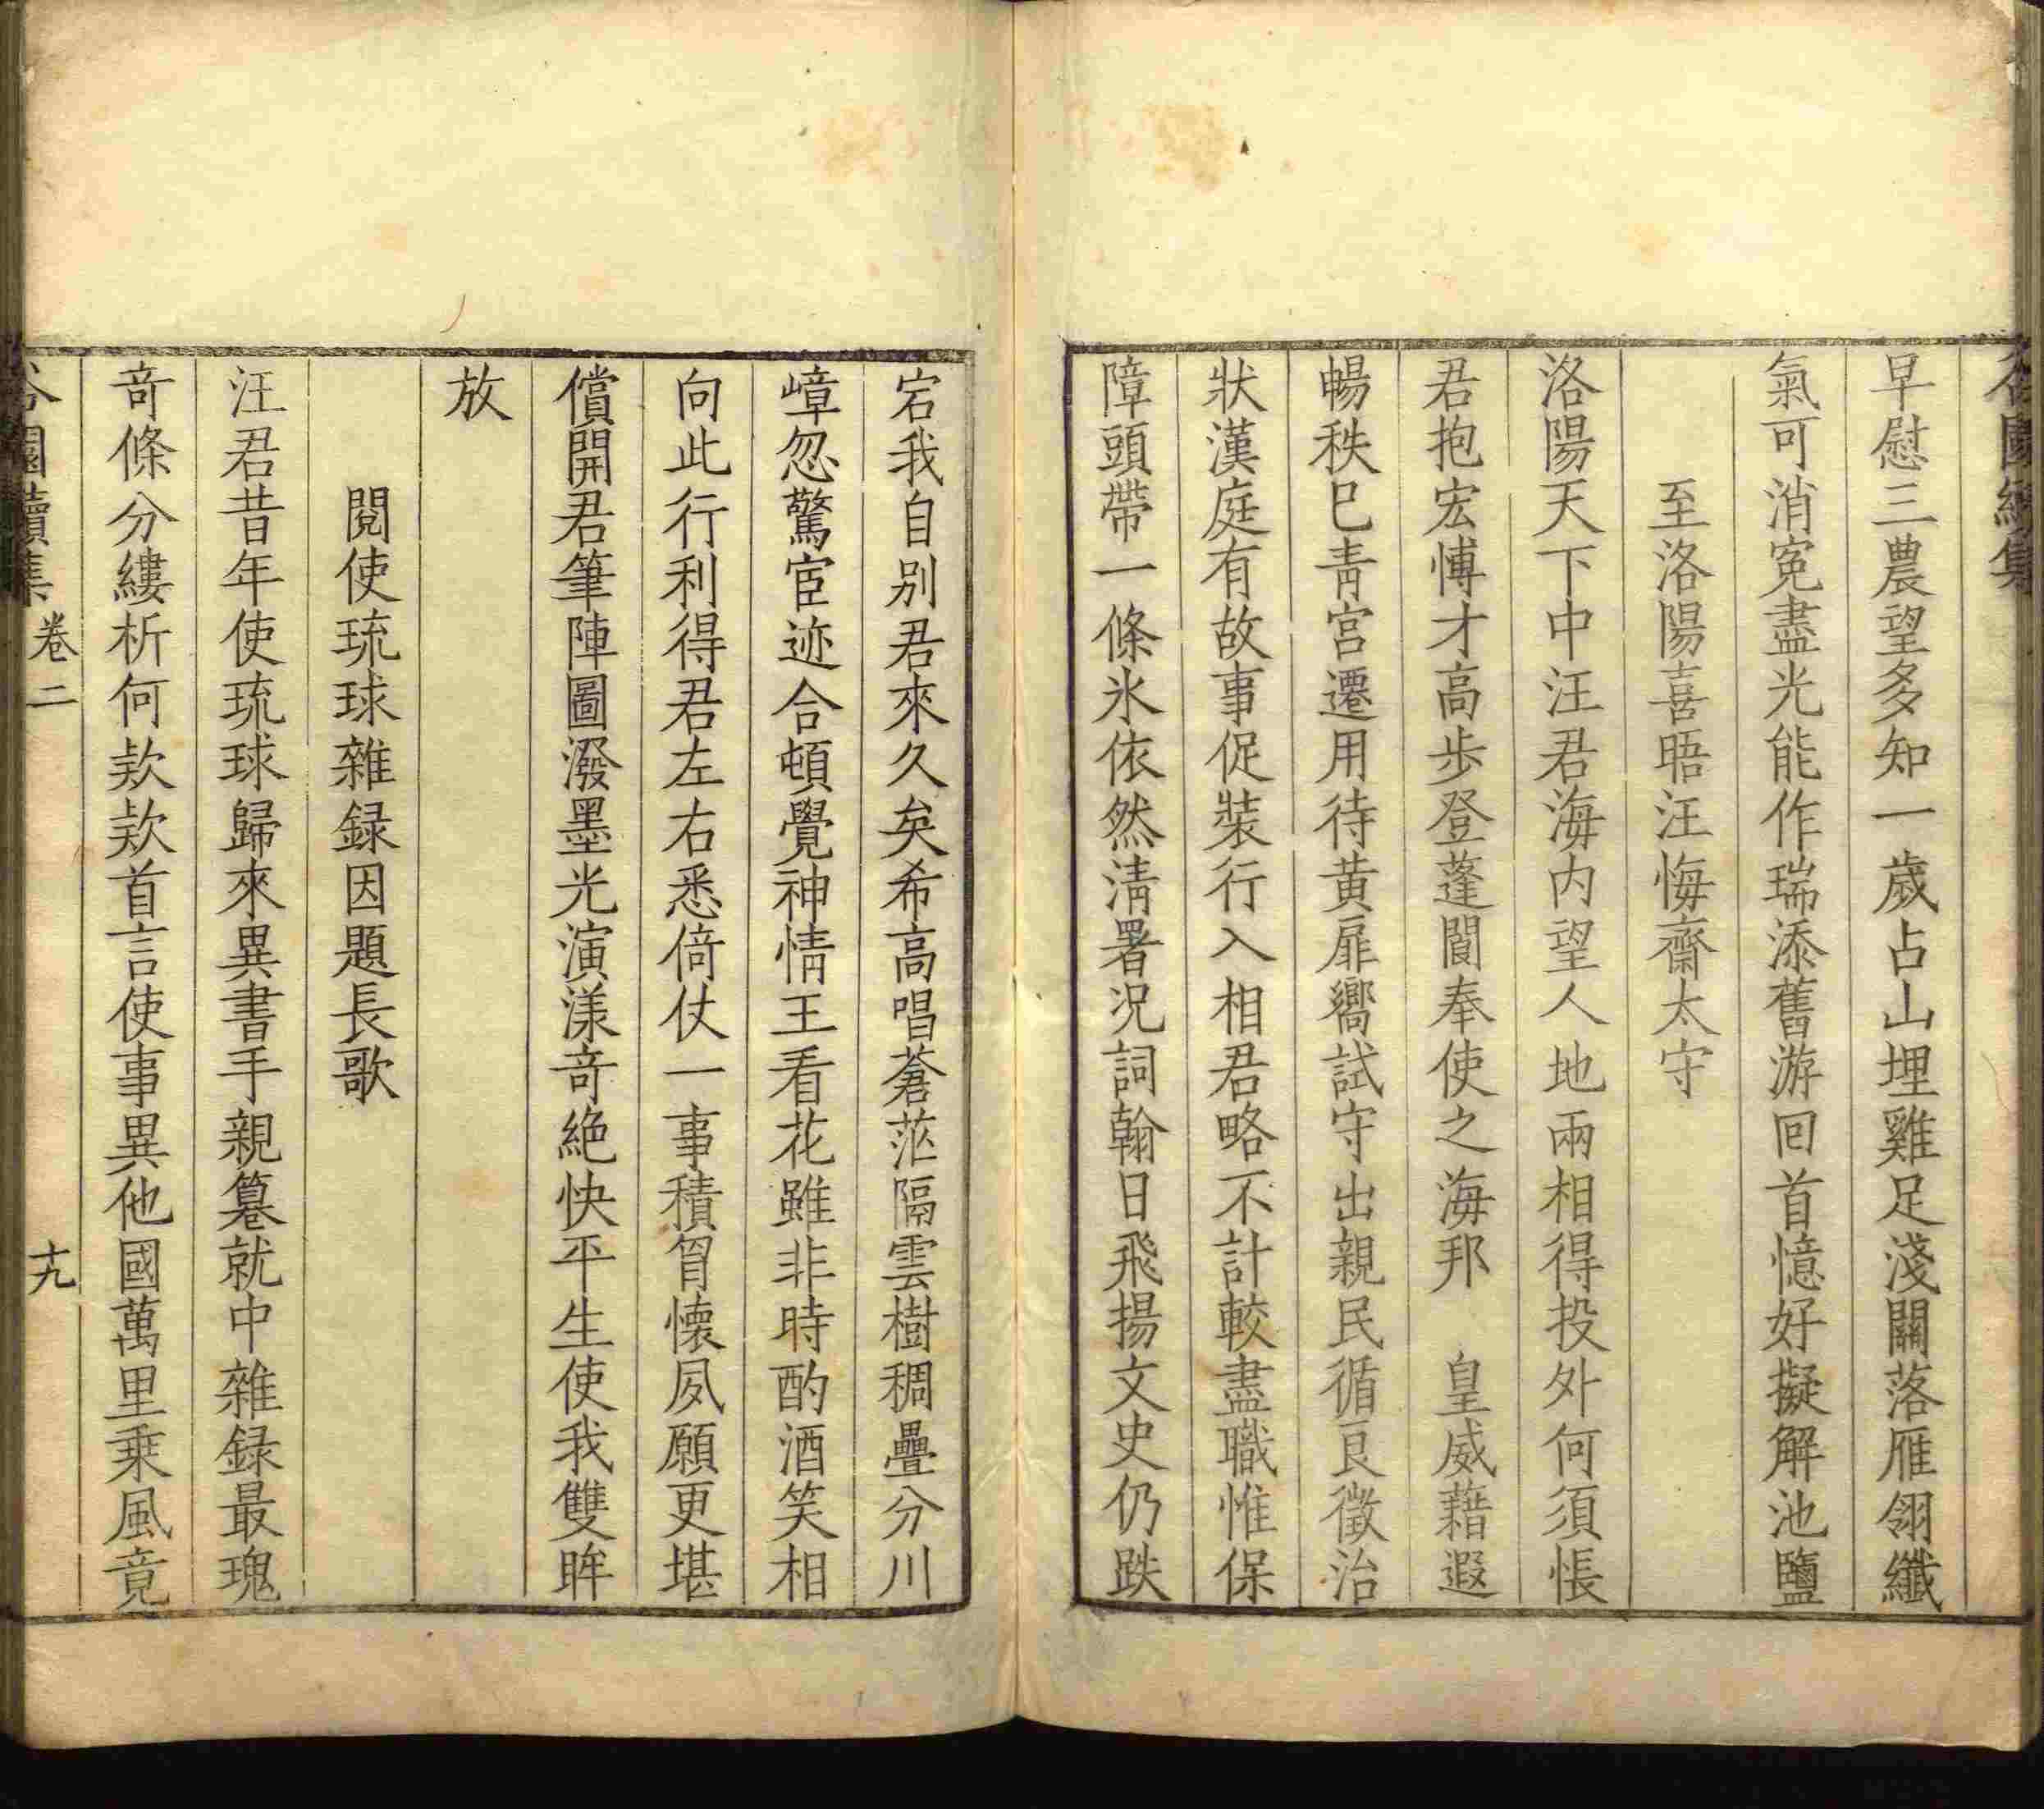 園續集
早慰三農望多知一歲占山埋雞足淺關落雁翎纖
氣可消寃盡光能作瑞添舊游回首憶好擬解池鹽
至洛陽喜晤汪悔齋太守
洛陽天下中汪君海内望人地兩相得投外何須悵
君抱宏博才高步登蓬閬奉使之海邦　皇威藉遐
暢秩巳青宫遷用待黄扉嚮試守出親民循良徵治
狀漢庭有故事促裝行入相君略不計較盡職惟保
障頭帶一條氷依然淸署况詞翰日飛揚文史仍跌
宕我自别君來久矣希高唱蒼茫隔雲樹稠疊分川
嶂忽驚宦迹合頓覺神情王看花雖非時酌酒笑相
向此行利得君左右悉倚仗一事積胷懷夙願更堪
償開君筆陣圖潑墨光演漾竒絶快平生使我雙眸
放
閱使琉球雜録因題長歌
汪君昔年使琉球歸來異書手親篡就中雜録最瑰
竒條分縷析何欵欵首言使事異他國萬里乘風竟
谷園續集　卷二　十九